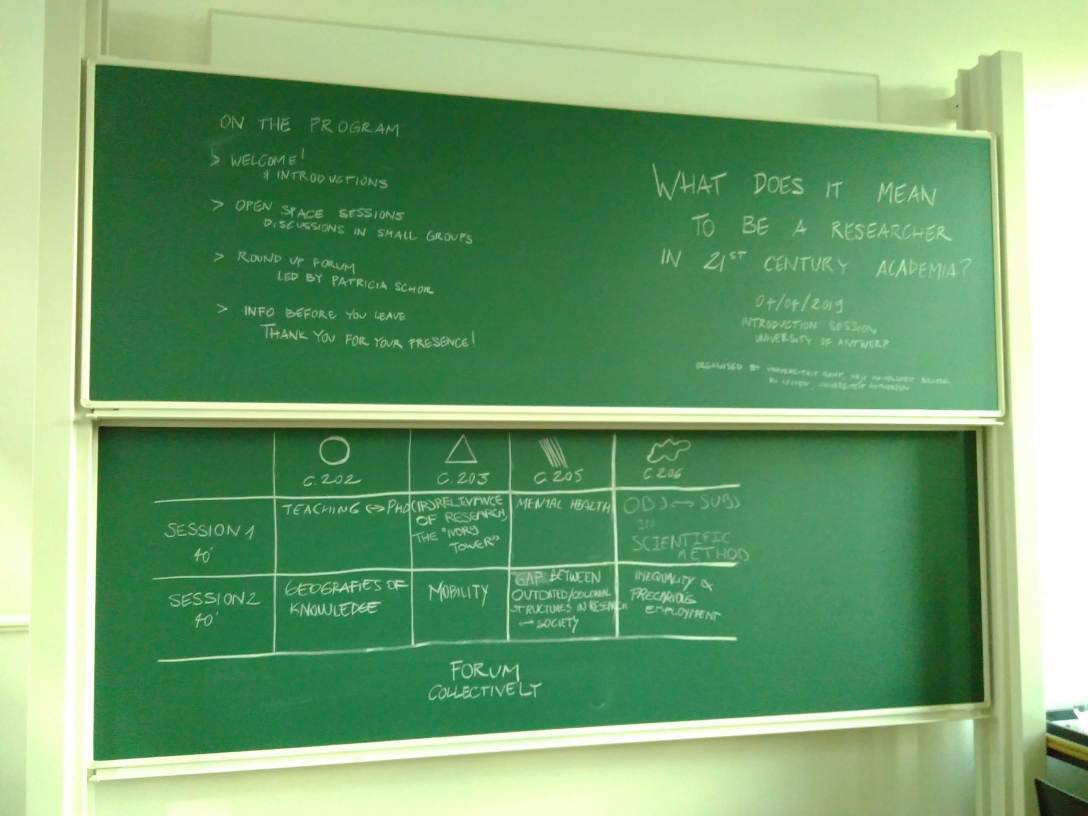 ON THE PROGRAM
> WELCOME!
& INTRODUCTIONS
> OPEN SPACE SESSIONS
DISCUSSIONS IN SMALL GROUPS
> ROUND UP FORUM
LED BY PATRICIA SCHOR
> INFO BEFORE YOU LEAVE
THANK YOU FOR YOUR PRESENCE!
WHAT DOES IT MEAN
TO BE A RESEARCHER
IN 21ST CENTURY ACADEMIA?
04/04/2019
INTRODUCTION SESSION,
UNIVERSITY OF ANTWERP
ORGANISED BY UNIVERSITEIT GENT,
KU LEUVEN, UNIVERSITEIT ANTWERPEN
C.202 C.203 C.205 C.206
SESSION 1
40'
TEACHING ↔ PhD
(IR)RELEVANCE
OF RESEARCH,
THE "IVORY
TOWER"
MENTAL HEALTH
OBJ ↔ SUBJ
IN
SCIENTIFIC
METHOD
SESSION 2
40'
GEOGRAFIES OF
KNOWLEDGE
MOBILITY
GAP BETWEEN
OUTDATED/COLONIAL
STRUCTURES IN RESEARCH
→ SOCIETY
INEQUALITY &
PRECARIOUS
EMPLOYMENT
FORUM
COLLECTIVELY